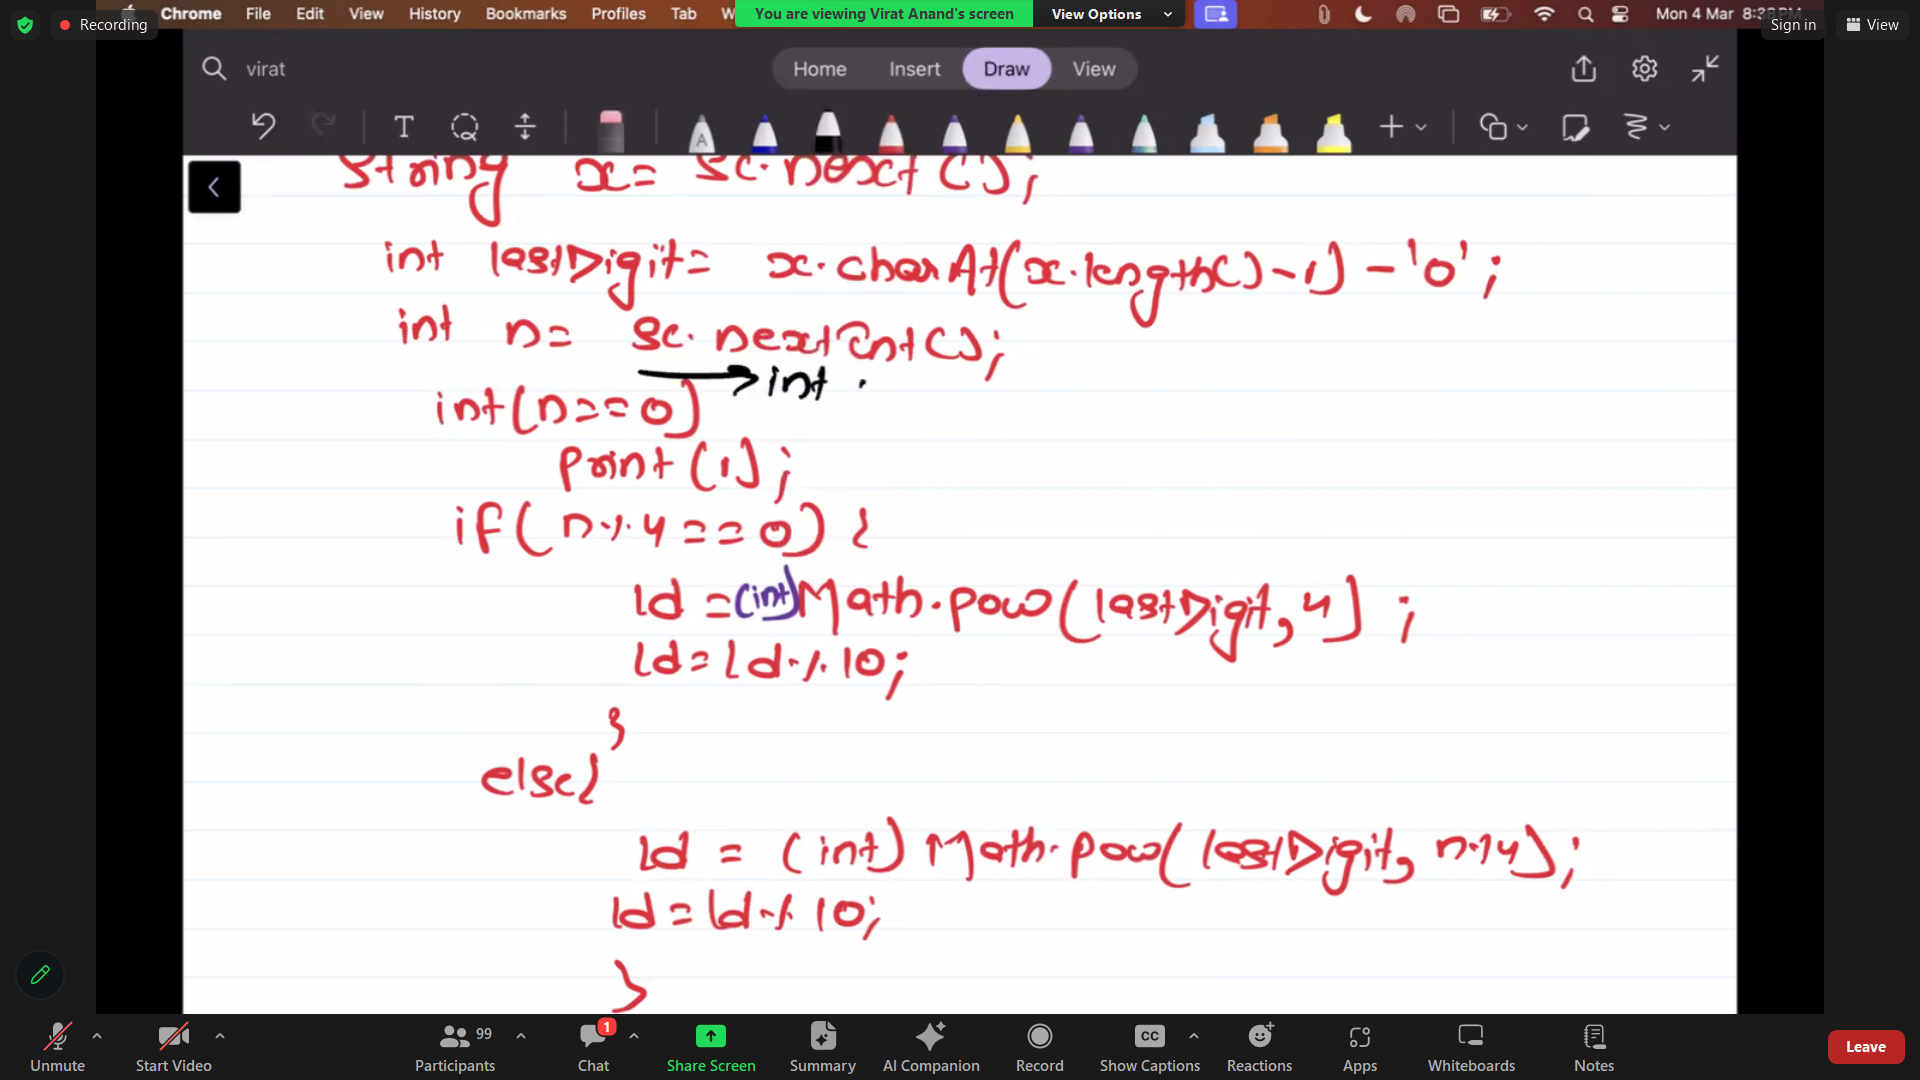 Chrome File Edit View History Bookmarks Profiles Tab W You are viewing Virat Anand's screen View Options Mon 4 Mar 8:38 PM
Recording Sign in View
virat Home Insert Draw View
T A
String x= sc.next();
int lastDigit= x.charAt(x.length()-1)-'0';
int n= sc.nextInt();
int .
int(n==0)
print(1);
if(n%4==0){
ld =(int)Math.pow(lastDigit,4);
ld=ld%10;
}
else{
ld = (int) Math.pow(lastDigit, n%4);
ld=ld%10;
}
99 1 CC
Unmute Start Video Participants Chat Share Screen Summary AI Companion Record Show Captions Reactions Apps Whiteboards Notes Leave